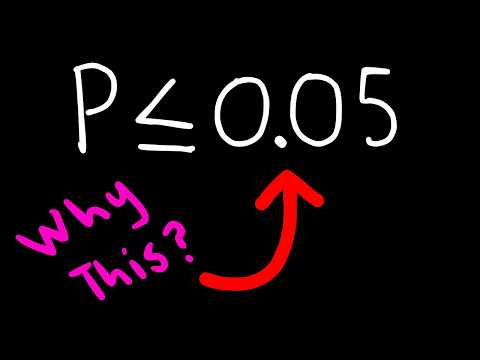 P≤0.05
Why
This?